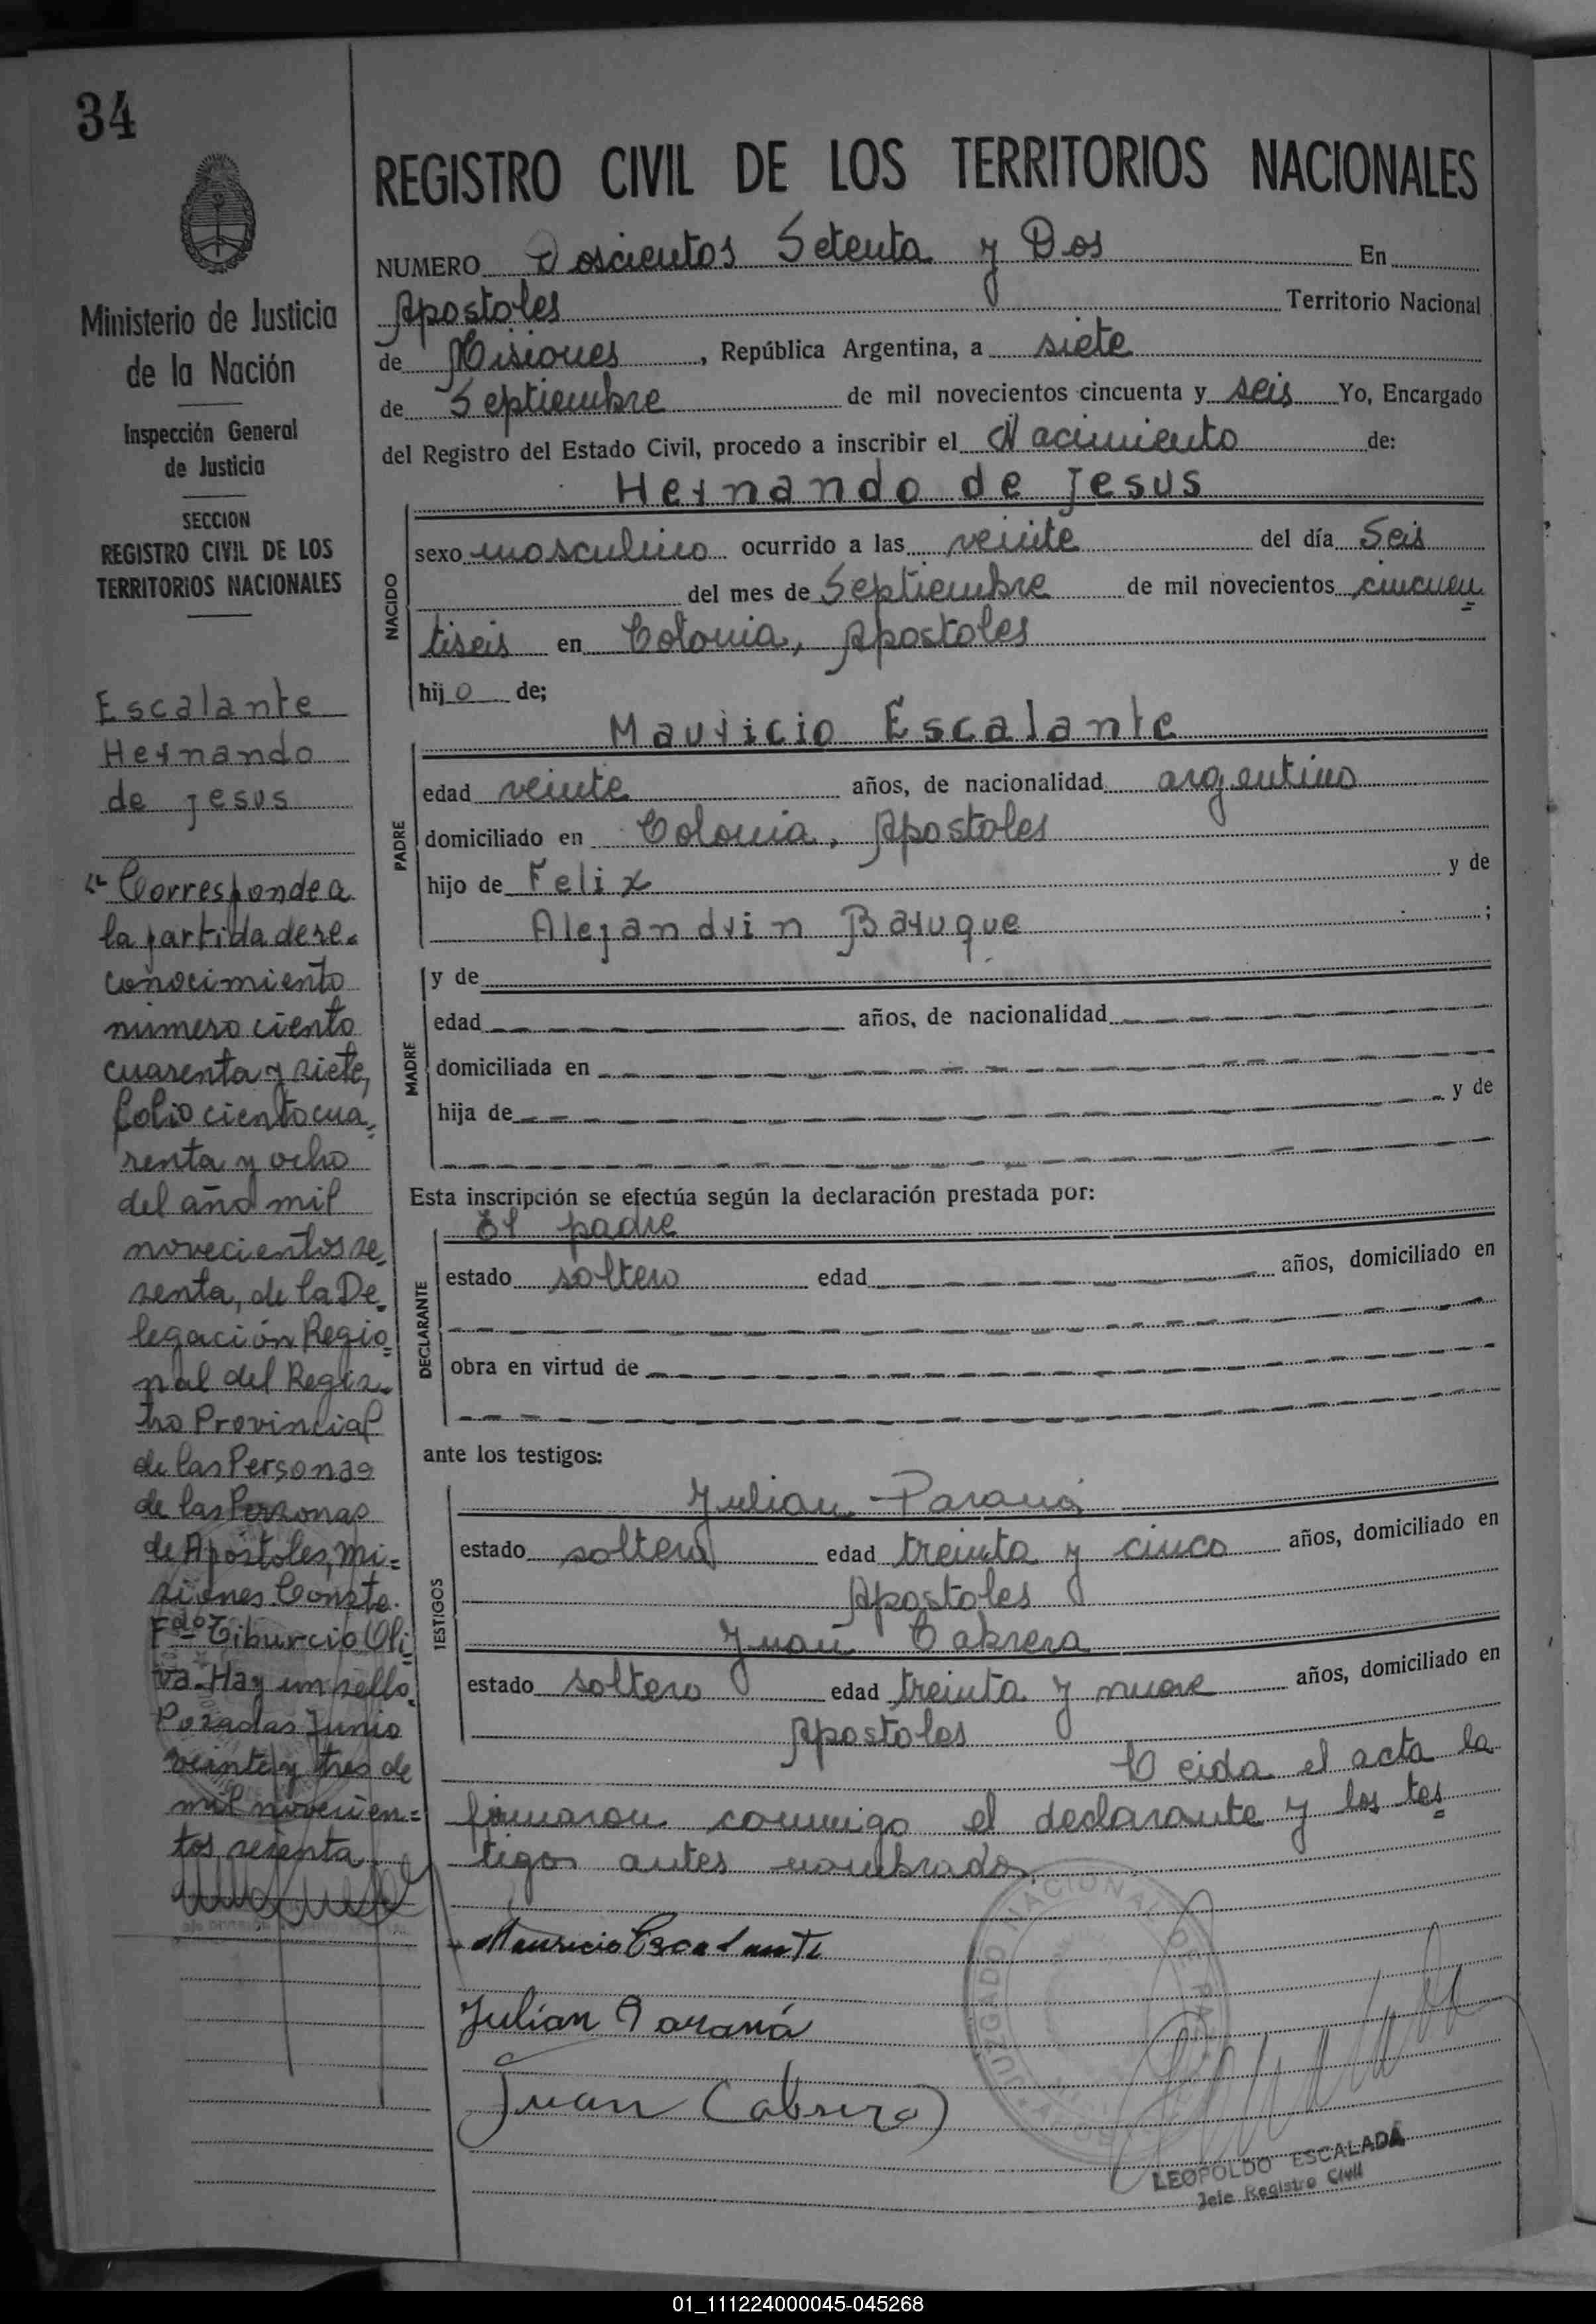 34
Ministerio de Justicia
de la Nación
Inspección General
de Justicia
SECCION
REGISTRO CIVIL DE LOS
TERRITORIOS NACIONALES
Escalante
Hernando
de Jesus
"Corresponde a
la partida de re-
conocimiento
número ciento
cuarenta y siete,
folio ciento cua=
renta y ocho
del año mil
novecientos se=
senta, de la De=
legación Regio=
nal del Regis-
tro Provincial
de las Personas
de las Personas
de Apóstoles, Mi=
siones Conste.
Fdo Tiburcio Oli=
va. Hay un sello.
Posadas Junio
veinte y tres de
mil novecien=
tos sesenta
REGISTRO CIVIL DE LOS TERRITORIOS NACIONALES
NUMERO Doscientos Setenta y Dos En
Apostoles Territorio Nacional
de Misiones, República Argentina, a siete
de Septiembre de mil novecientos cincuenta y seis Yo, Encargado
del Registro del Estado Civil, procedo a inscribir el Nacimiento de:
Hernando de Jesus
NACIDO
sexo masculino ocurrido a las veinte del día Seis
del mes de Septiembre de mil novecientos cincuen=
tiseis en Colonia, Apostoles
hijo de;
PADRE
Mauricio Escalante
edad veinte años, de nacionalidad argentino
domiciliado en Colonia, Apostoles
hijo de Felix y de
Alejandrin Baruque ;
MADRE
y de
edad años, de nacionalidad
domiciliada en
hija de y de
Esta inscripción se efectúa según la declaración prestada por:
DECLARANTE
El padre
estado soltero edad años, domiciliado en
obra en virtud de
ante los testigos:
TESTIGOS
Julian Paraná
estado soltero edad treinta y cinco años, domiciliado en
Apostoles
Juan Cabrera
estado soltero edad treinta y nueve años, domiciliado en
Apostoles
el acta la
firmaron conmigo el declarante y los tes=
tigos antes nombrados.
Mauricio Escalante
Julían Paraná
Juan Cabrera
JUZGADO NACIONAL DE PAZ
LEOPOLDO ESCALADA
Jefe Registro Civil
01_111224000045-045268